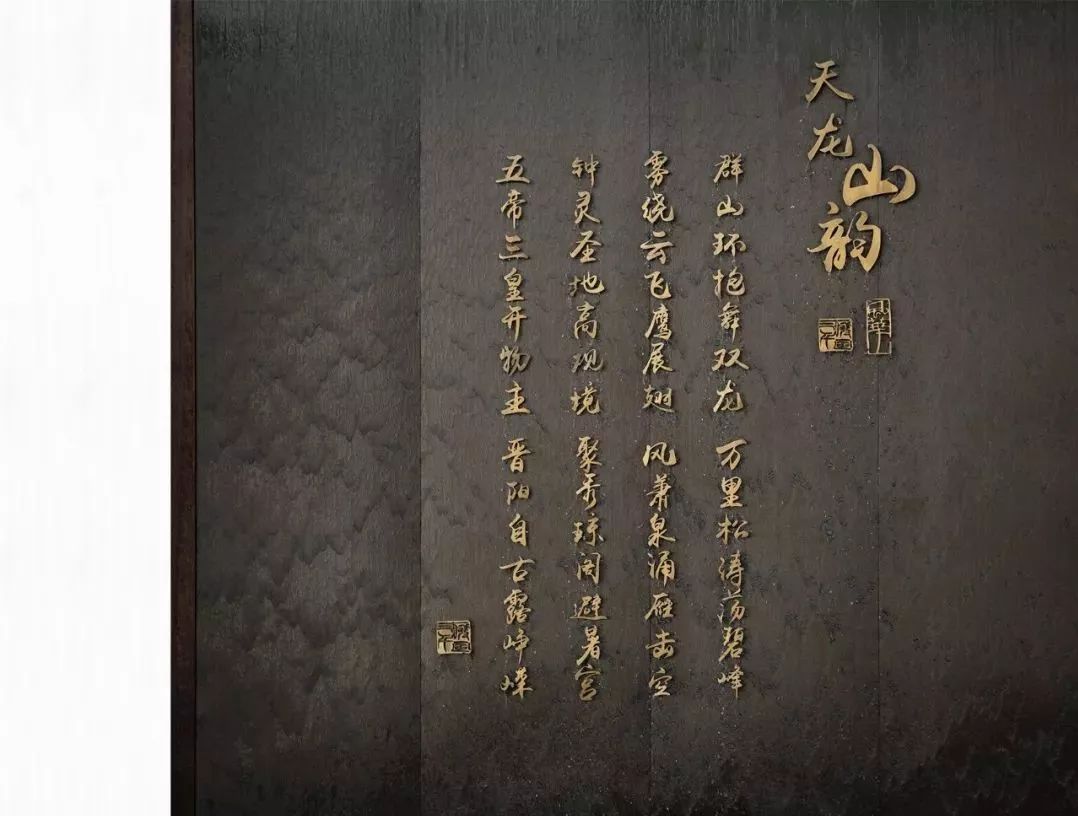 天龙山韵
群山环抱舞双龙 万里松涛荡碧峰
雾绕云飞鹰展翅 风萧泉涌雁击空
钟灵圣地高观境 聚秀琼阁避暑宫
五帝三皇开物主 晋阳自古露峥嵘